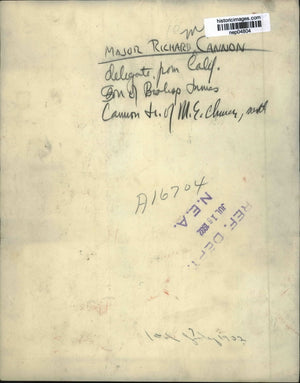 historicimages.com
nep04804
M
MAJOR RICHARD CANNON
delegate from Calif.
Son of Bishop James
Cannon Jr. of M.E. Church, south
A16704
REF. DEPT.
JUL 18 1932
N.E.A.